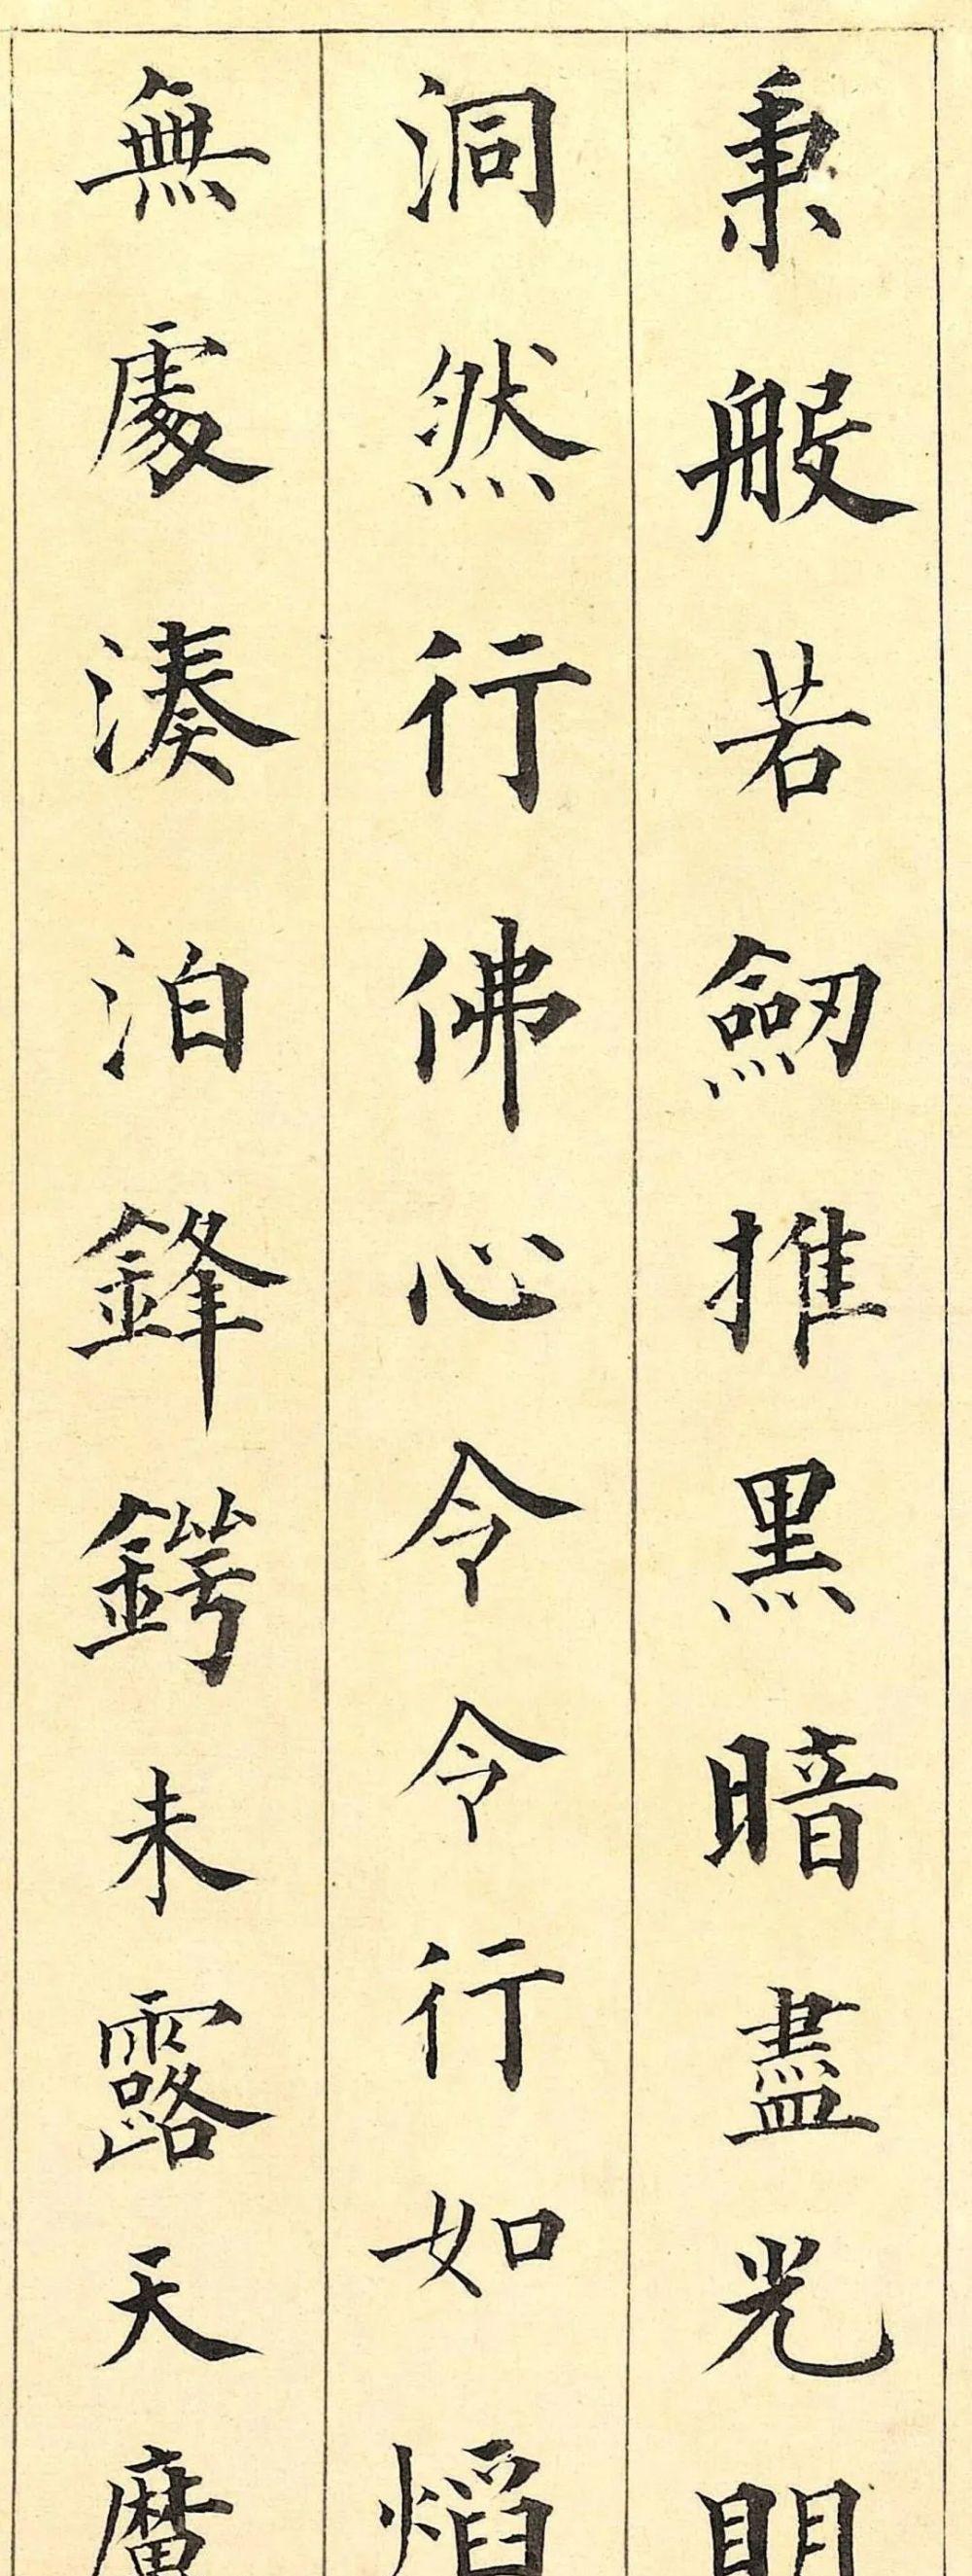 秉般若劒推黒暗盡光明
洞然行佛心令令行如焰
無處湊泊鋒鍔未露天魔